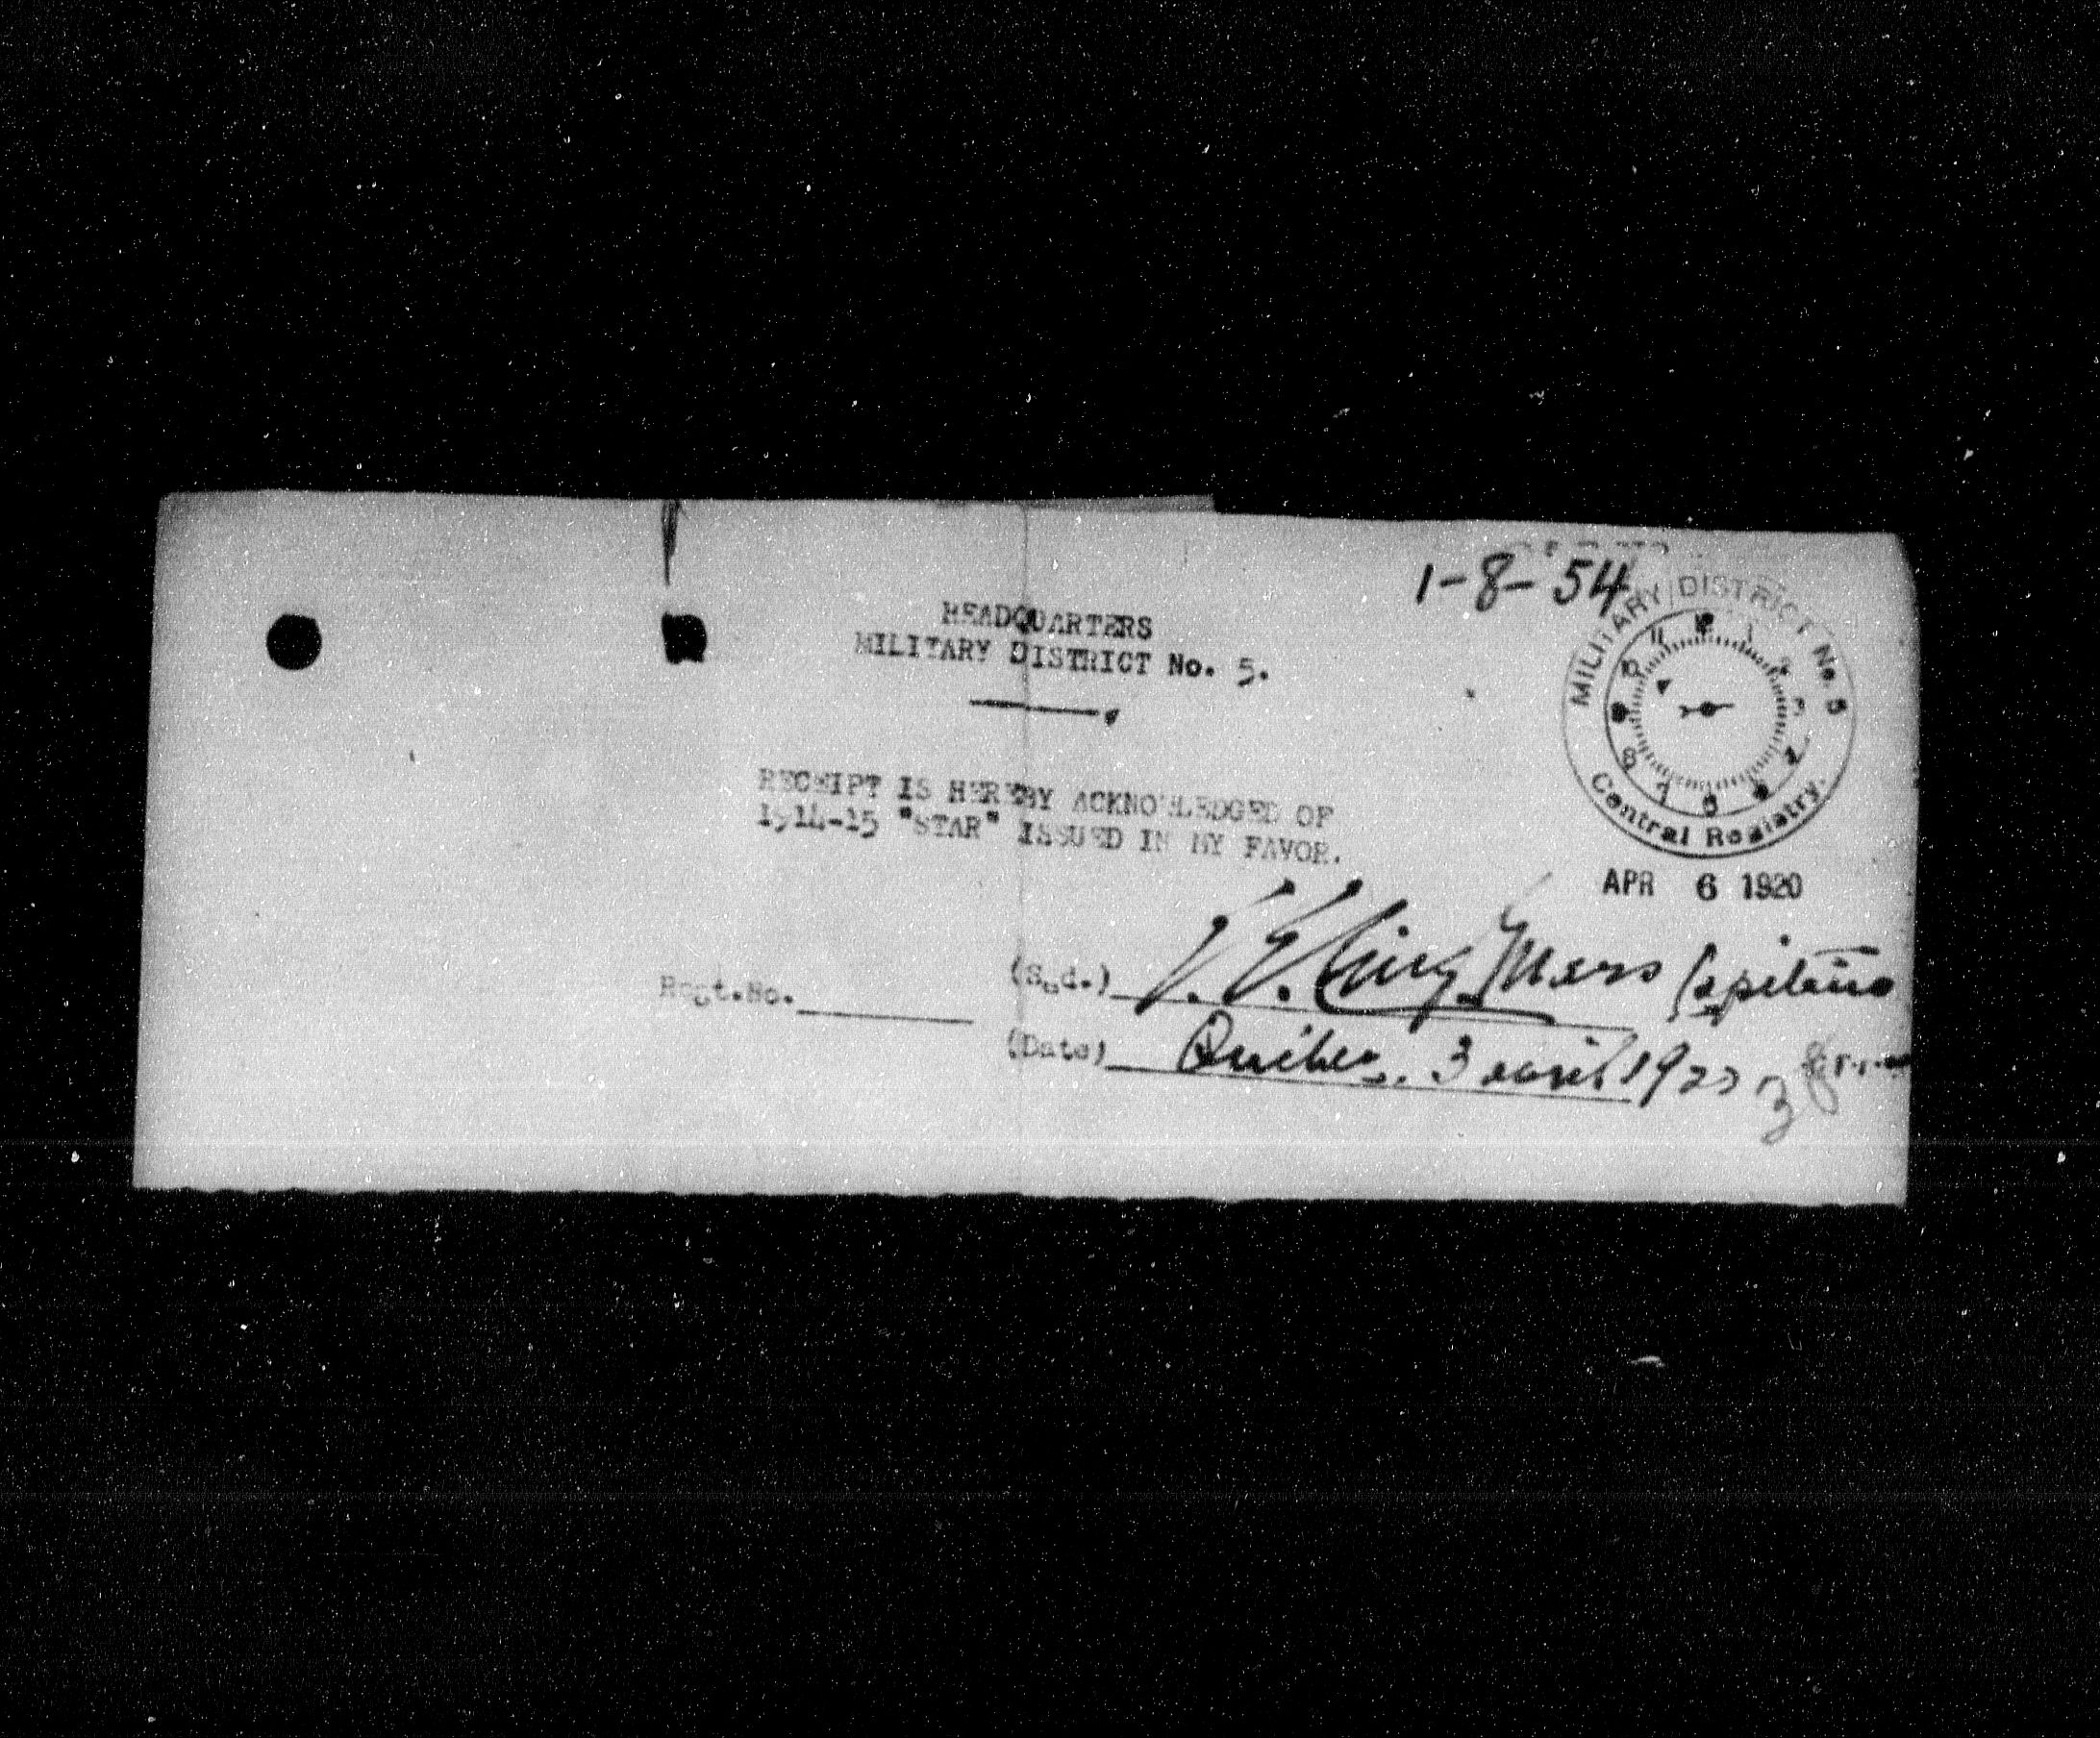 1-8-54
HEADQUARTERS
MILITARY DISTRICT No. 5.
MILITARY DISTRICT No. 5
12 1 2 3 4 5 6 7 8 9 10 11
Central Registry.
APR 6 1920
RECEIPT IS HEREBY ACKNOWLEDGED OF
1914-15 "STAR" ISSUED IN MY FAVOR.
Regt.No.
(Sgd.) Mers Capitaine
(Date) Québec. 3 avril 1920